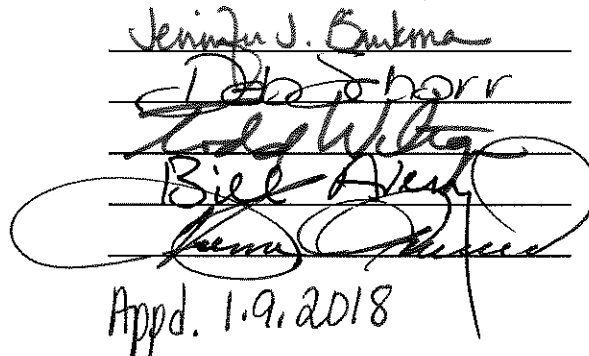 Jennifer J. Brinkman
Deb Schorr
Todd Wiltgen
Bill Avery
Appd. 1.9.2018